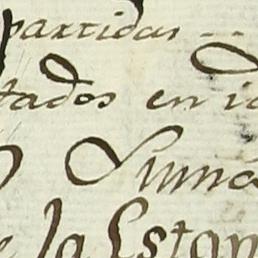 partidas --
tados en
Suma
la Estam